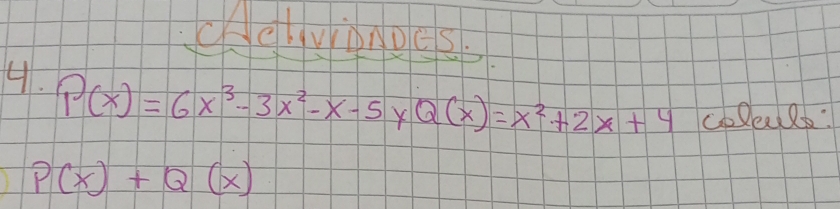 ACTIVIDADES.
4. P(x) = 6x³ - 3x² - x - 5 y Q(x) = x² + 2x + 4 calcula:
P(x) + Q(x)